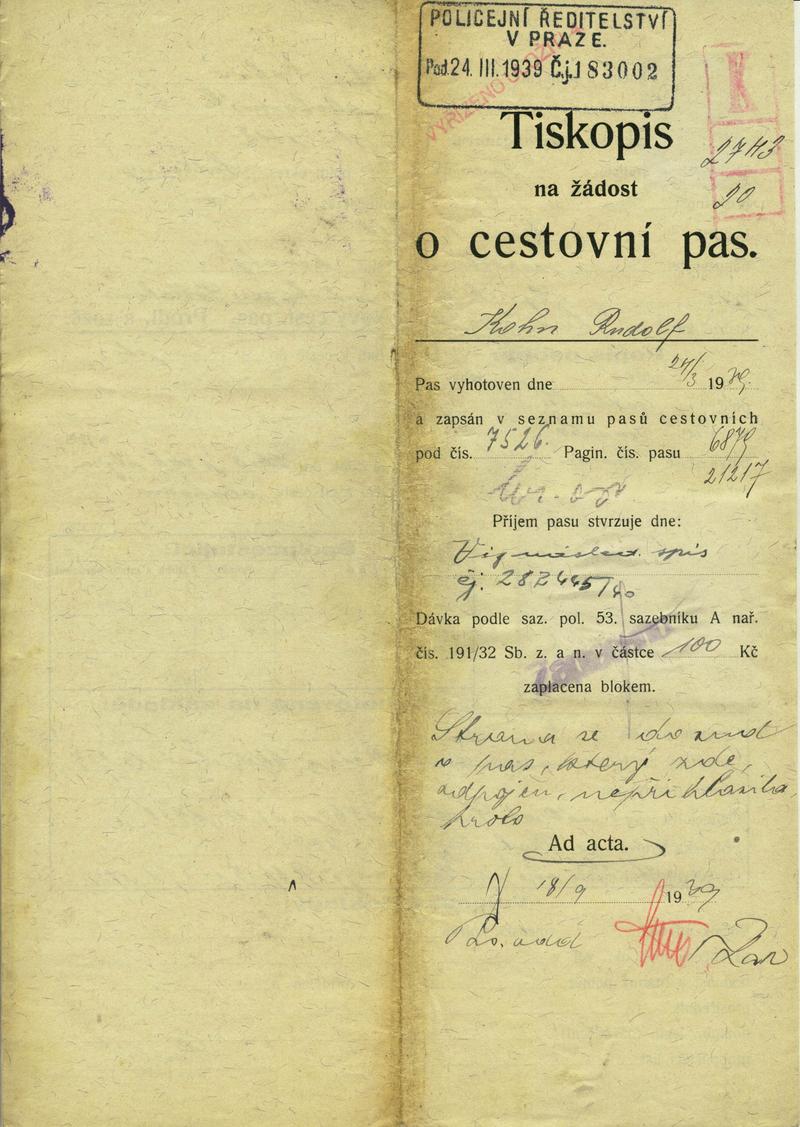 POLICEJNÍ ŘEDITELSTVÍ
V PRAZE.
Pod. 24. III. 1939 Č.j. 183002
VYŘÍZENO
2743
20
Tiskopis
na žádost
o cestovní pas.
Kohn Rudolf
Pas vyhotoven dne 24/3 1939.
a zapsán v seznamu pasů cestovních
pod čís. 7526. Pagin. čís. pasu 6879
21217
Příjem pasu stvrzuje dne:
Viz násled. spis
čj. 282445/40
Dávka podle saz. pol. 53. sazebníku A nař.
čís. 191/32 Sb. z. a n. v částce 100 Kč
zaplacena blokem.
Strana se dosud
o pas, který zde
odpojen, nepřihlásila,
proto
Ad acta.
18/9 1939